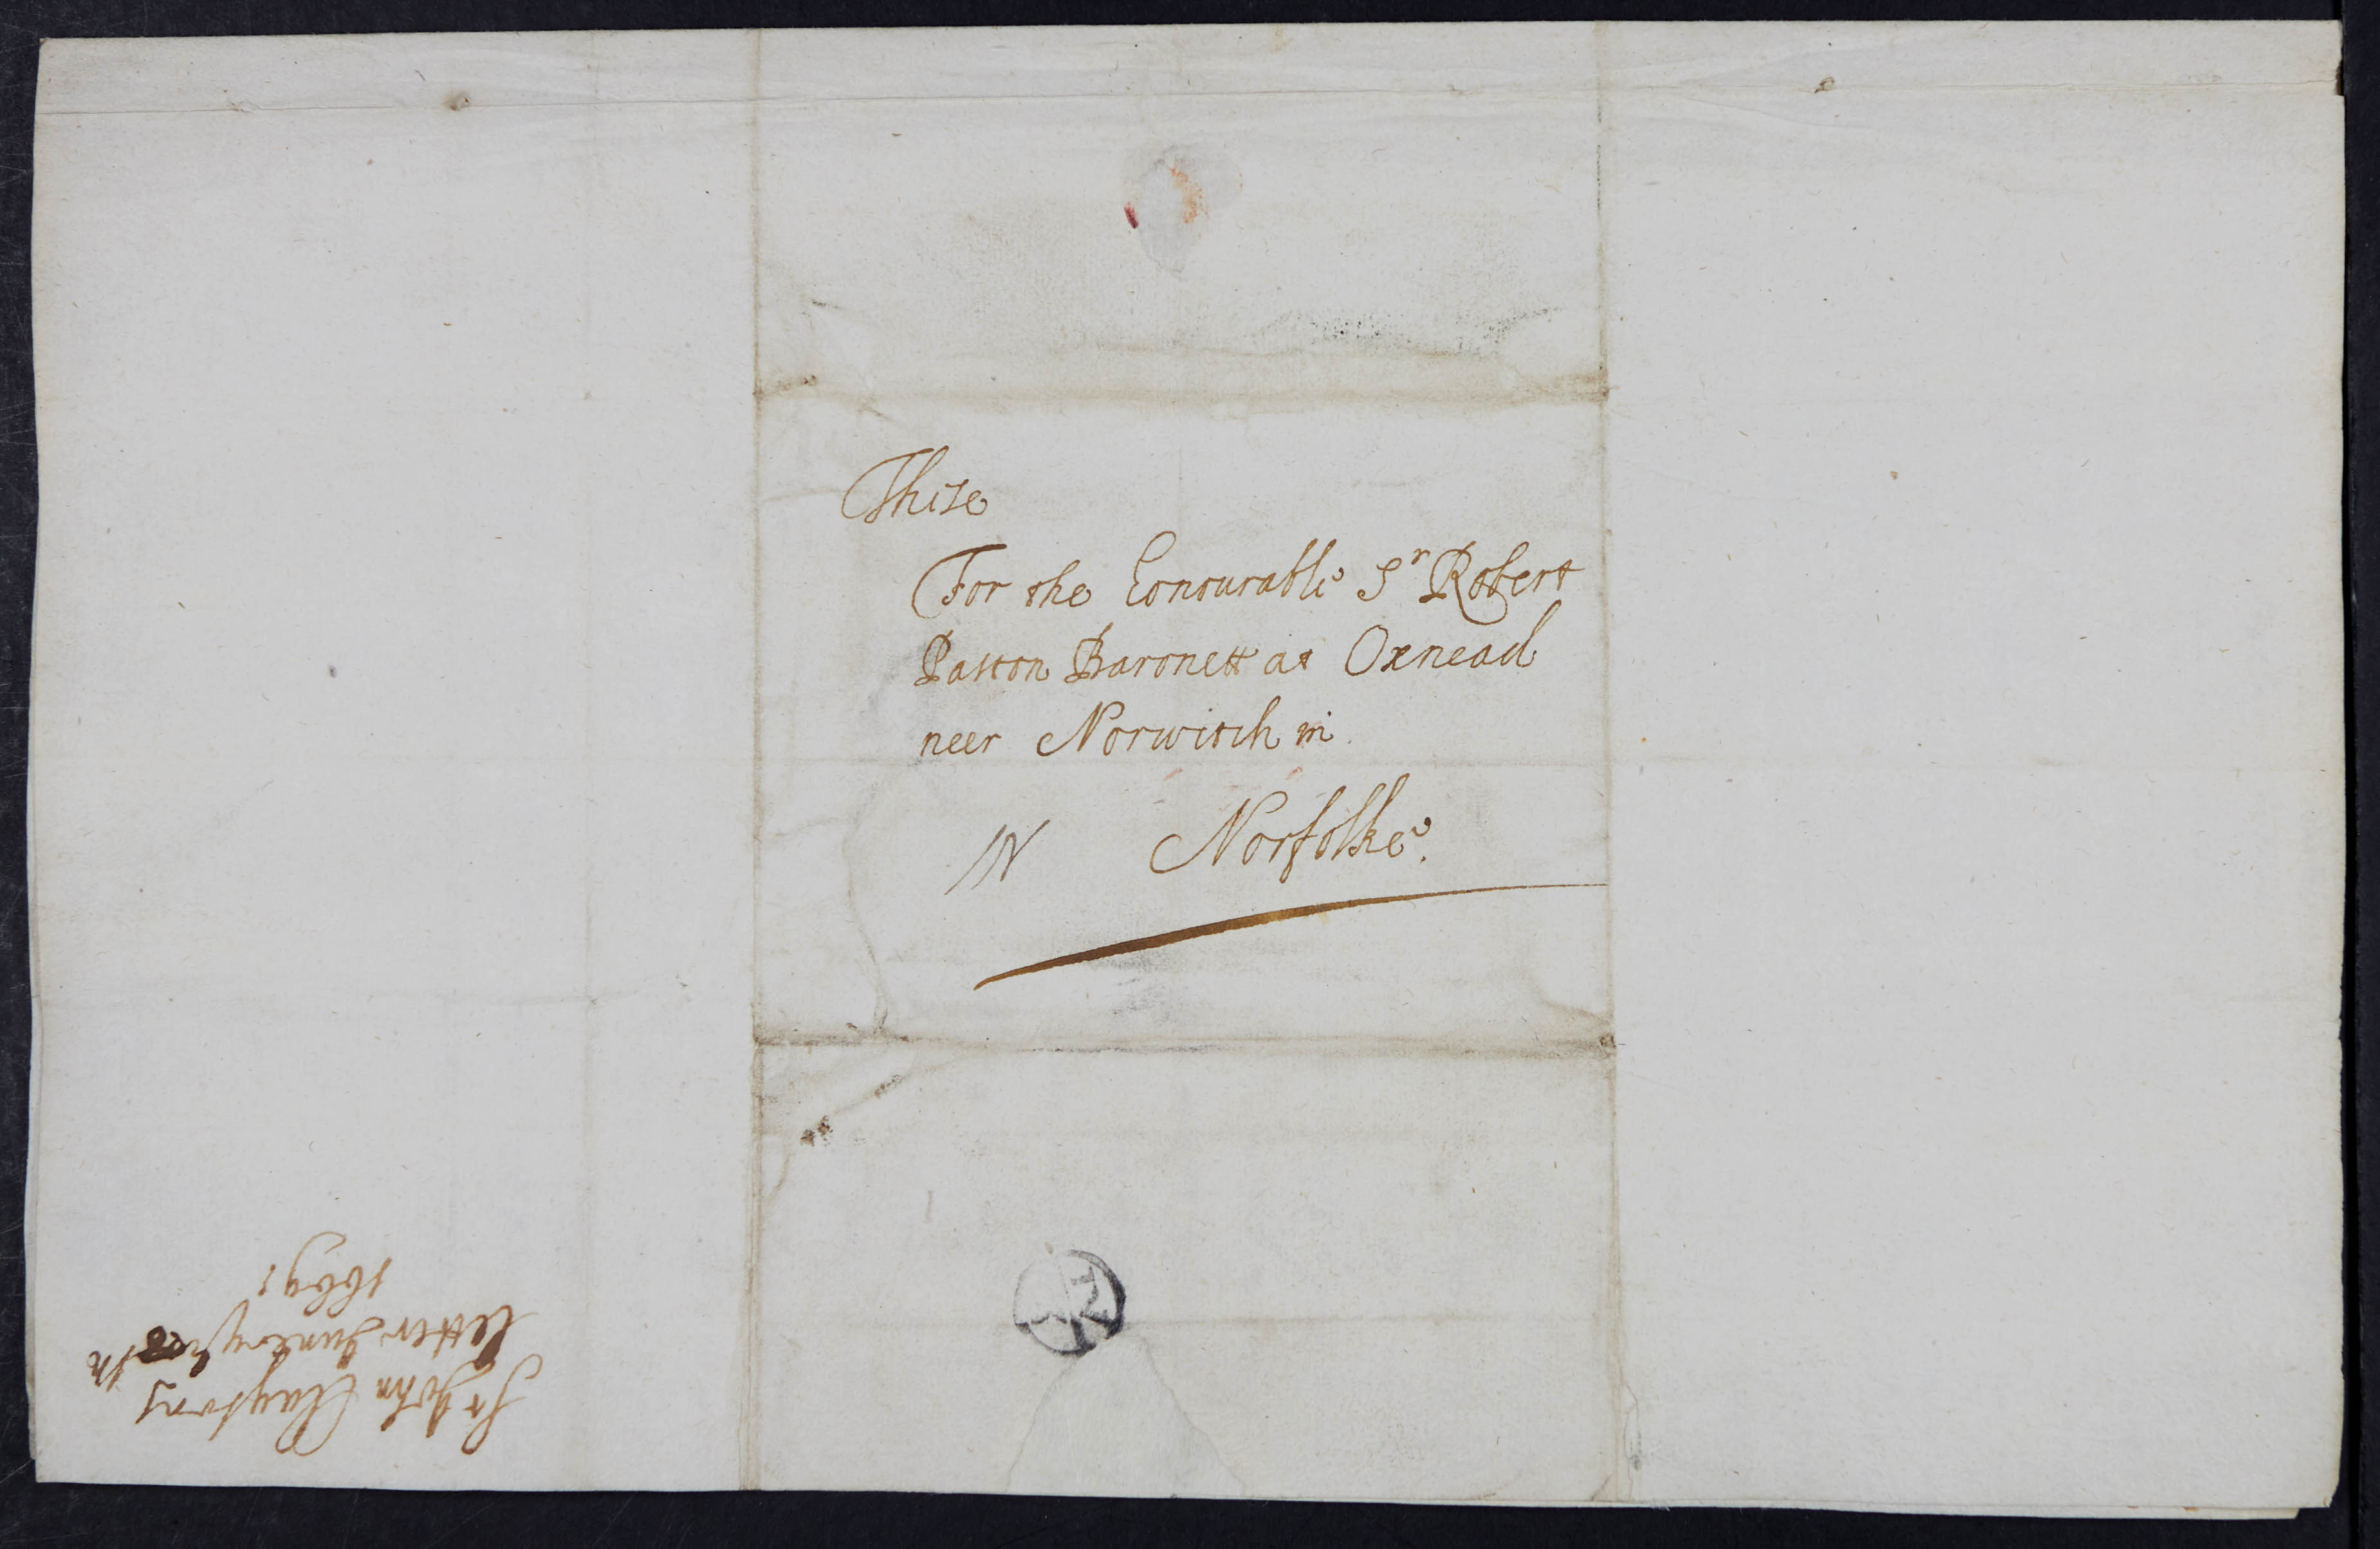 Thise
For the honourable Sr Robert
Paston Baronett at Oxnead
neer Norwitch in
Norfolke.
Sr John Claytons
letter June
1669: